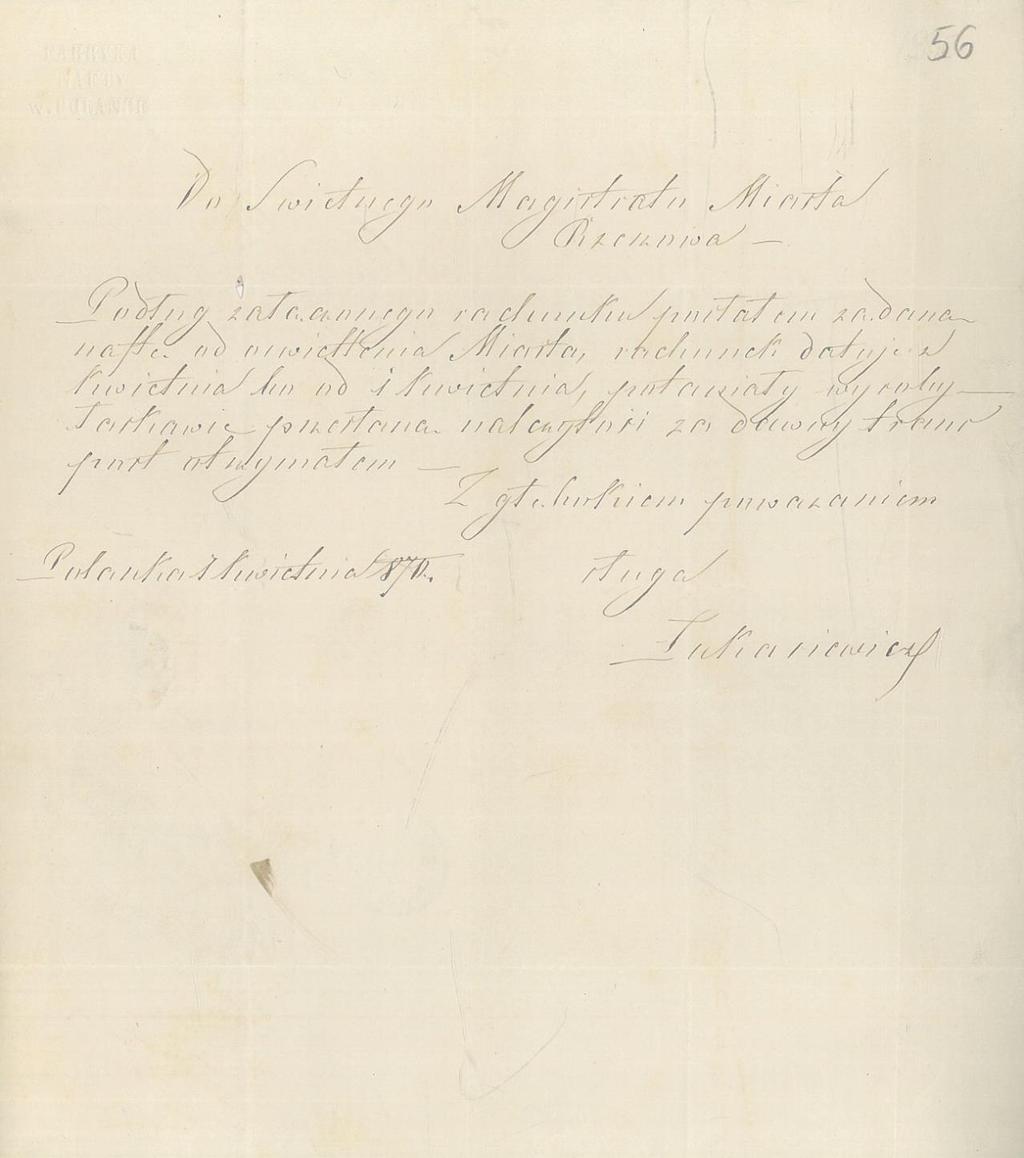 56
FABRYKA
NAFTY
W POLANCE
Do Swietnego Magistratu Miasta
Rzeszowa —
Podług załączonego rachunku posłałem żądaną
naftę od oswietlenia Miasta, rachunek datuje z
kwietnia bo od 1 kwietnia, potaniały wyroby —
Łaskawie przesłaną należytość za dawny trans
port otrzymałem —
Z głębokiem poważaniem
Polanka 1 kwietnia 1870.
sługa
Łukasiewicz